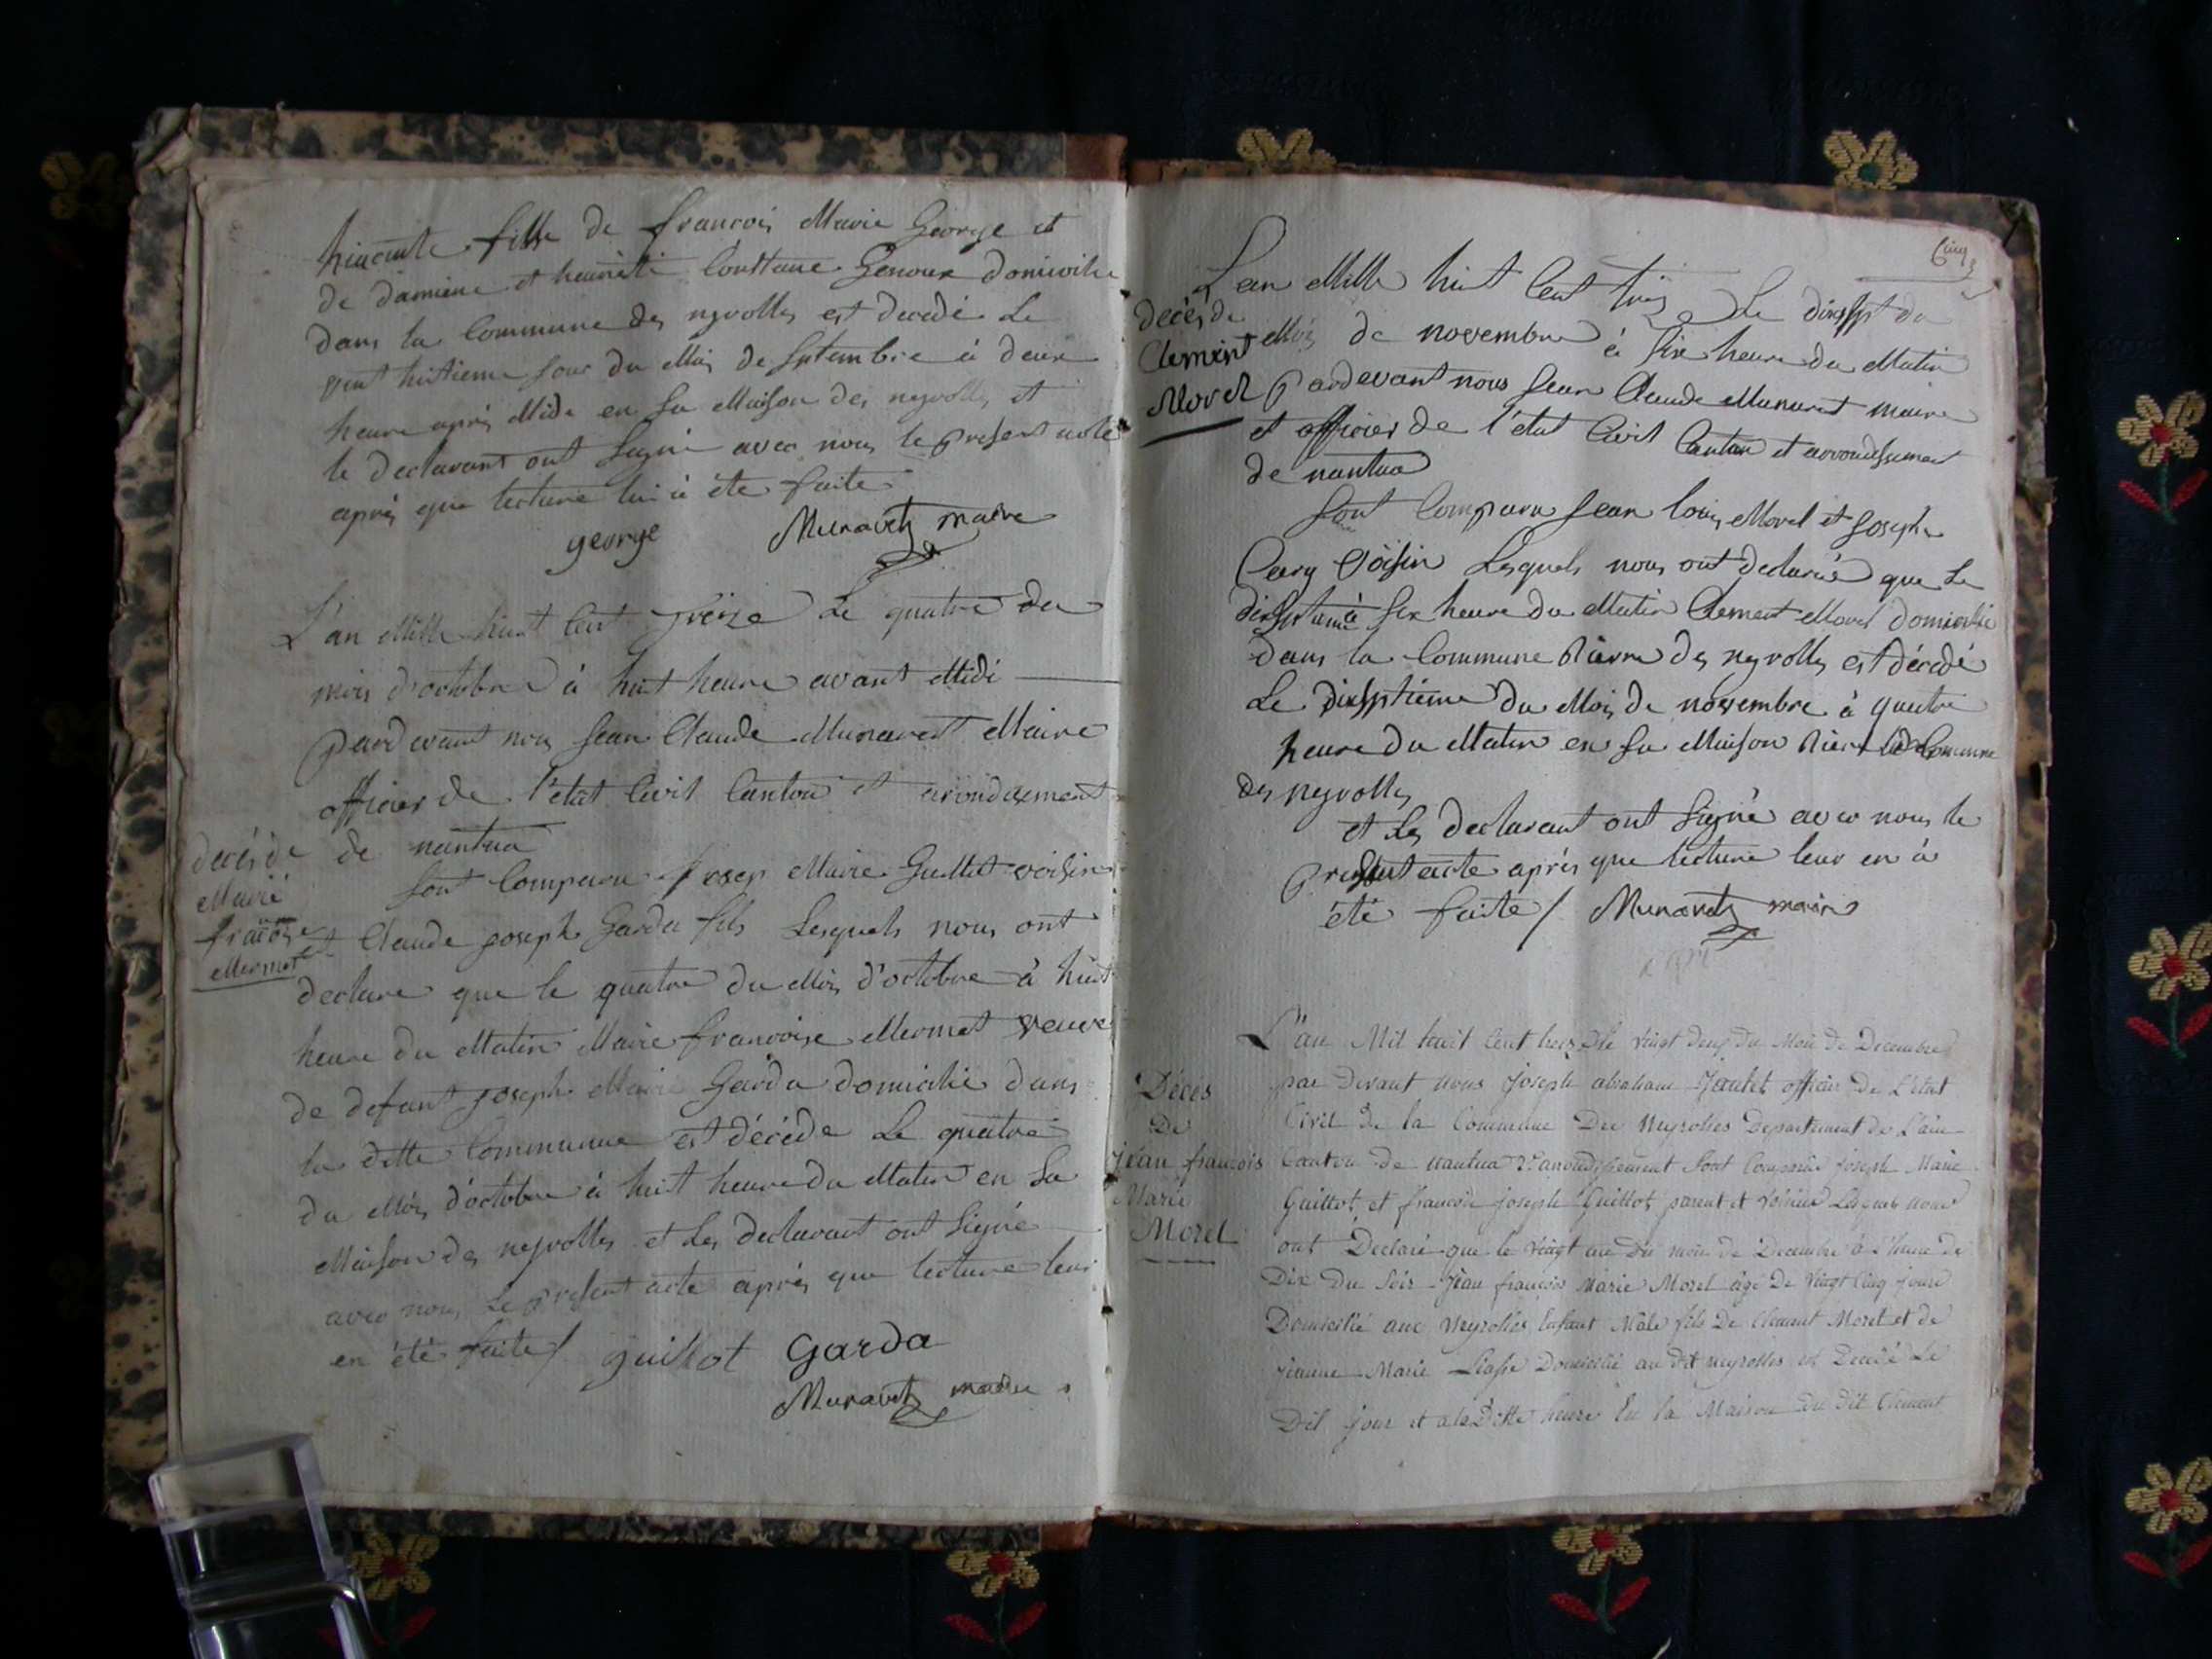 hiacinte fille de francois Marie George et
de damiene et heuriette Constance Genoux domicilie
dans la Commune des neyrolles est decedé Le
vint huitieme jour du Mois de Septembre à deux
heure après Midi en sa Maison des neyrolles et
le declarant ont Signé avec nous le present acte
après que lecture lui à été faite
george Munaret maire
L'an Mille huit Cent treize Le quatre du
mois d'octobre à huit heure avant Midi
Pardevant nous Jean Claude Munaret Maire
officier de l'etat Civil Canton et arondisement
de nantua
decés de
Marie
francoise
Mermet
Sont Comparu Josep Marie Guillot voisin
et Claude joseph Garda fils Lesquels nous ont
declare que le quatre du Mois d'octobre à huit
heure du Matin Marie francoise Mermet veuve
de defunt joseph Marie Garda domicilié dans
la ditte Commune est décéde Le quatre
du Mois d'octobre à huit heure du Matin en Sa
Maison des neyrolles et Les declarant ont Signé
avec nous Le present acte après que lecture leur
en été faite / guillot Garda
Munaret maire
Cinq
L'an Mille huit Cent treize Le dixsept du
decés de
Clement
Morel
Mois de novembre à Six heure du Matin
Pardevant nous Jean Claude Munaret maire
et officier de l'état Civil Canton et arrondissement
de nantua
Sont Comparu Jean louis Morel et Joseph
Cary Voisin Lesquels nous ont declarés que Le
dixseptieme à Six heure du Matin Clement Morel domicilié
dans la Commune Rierre des neyrolles est décedé
Le dixseptième du Mois de novembre à quatre
heure du Matin en Sa Maison Rierre Commune
des neyrolles
et Les declarant ont Signé avec nous le
Present acte après que lecture leur en à
été faite / Munaret maire
L'an Mil huit Cent treize le vingt deux du Mois de Decembre
Décès
De
jean francois
Marie
Morel
par Devant nous Joseph abraham Jantet officier De L'état
Civil de la Commune Des Neyrolles Departement de L'ain
Canton de nantua arrondissement Sont Comparu joseph Marie
Guillot et francois joseph Guillot parent et Voisin Lesquels nous
ont Declaré que le vingt un du mois de Decembre à L'heure de
Dix Du Soir Jean francois Marie Morel agé De Vingt Cinq jours
Domicilié aux Neyrolles Enfant Mâle fils De Clement Morel et de
jeanne Marie Domicilié au dit neyrolles est Decedé Le
Dit jour et a la Ditte heure En la Maison du Dit Clement